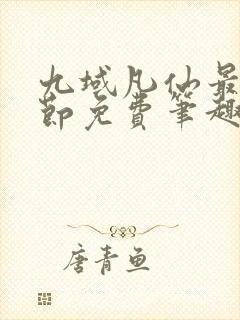 九域凡仙最
节免费笔趣
唐青鱼